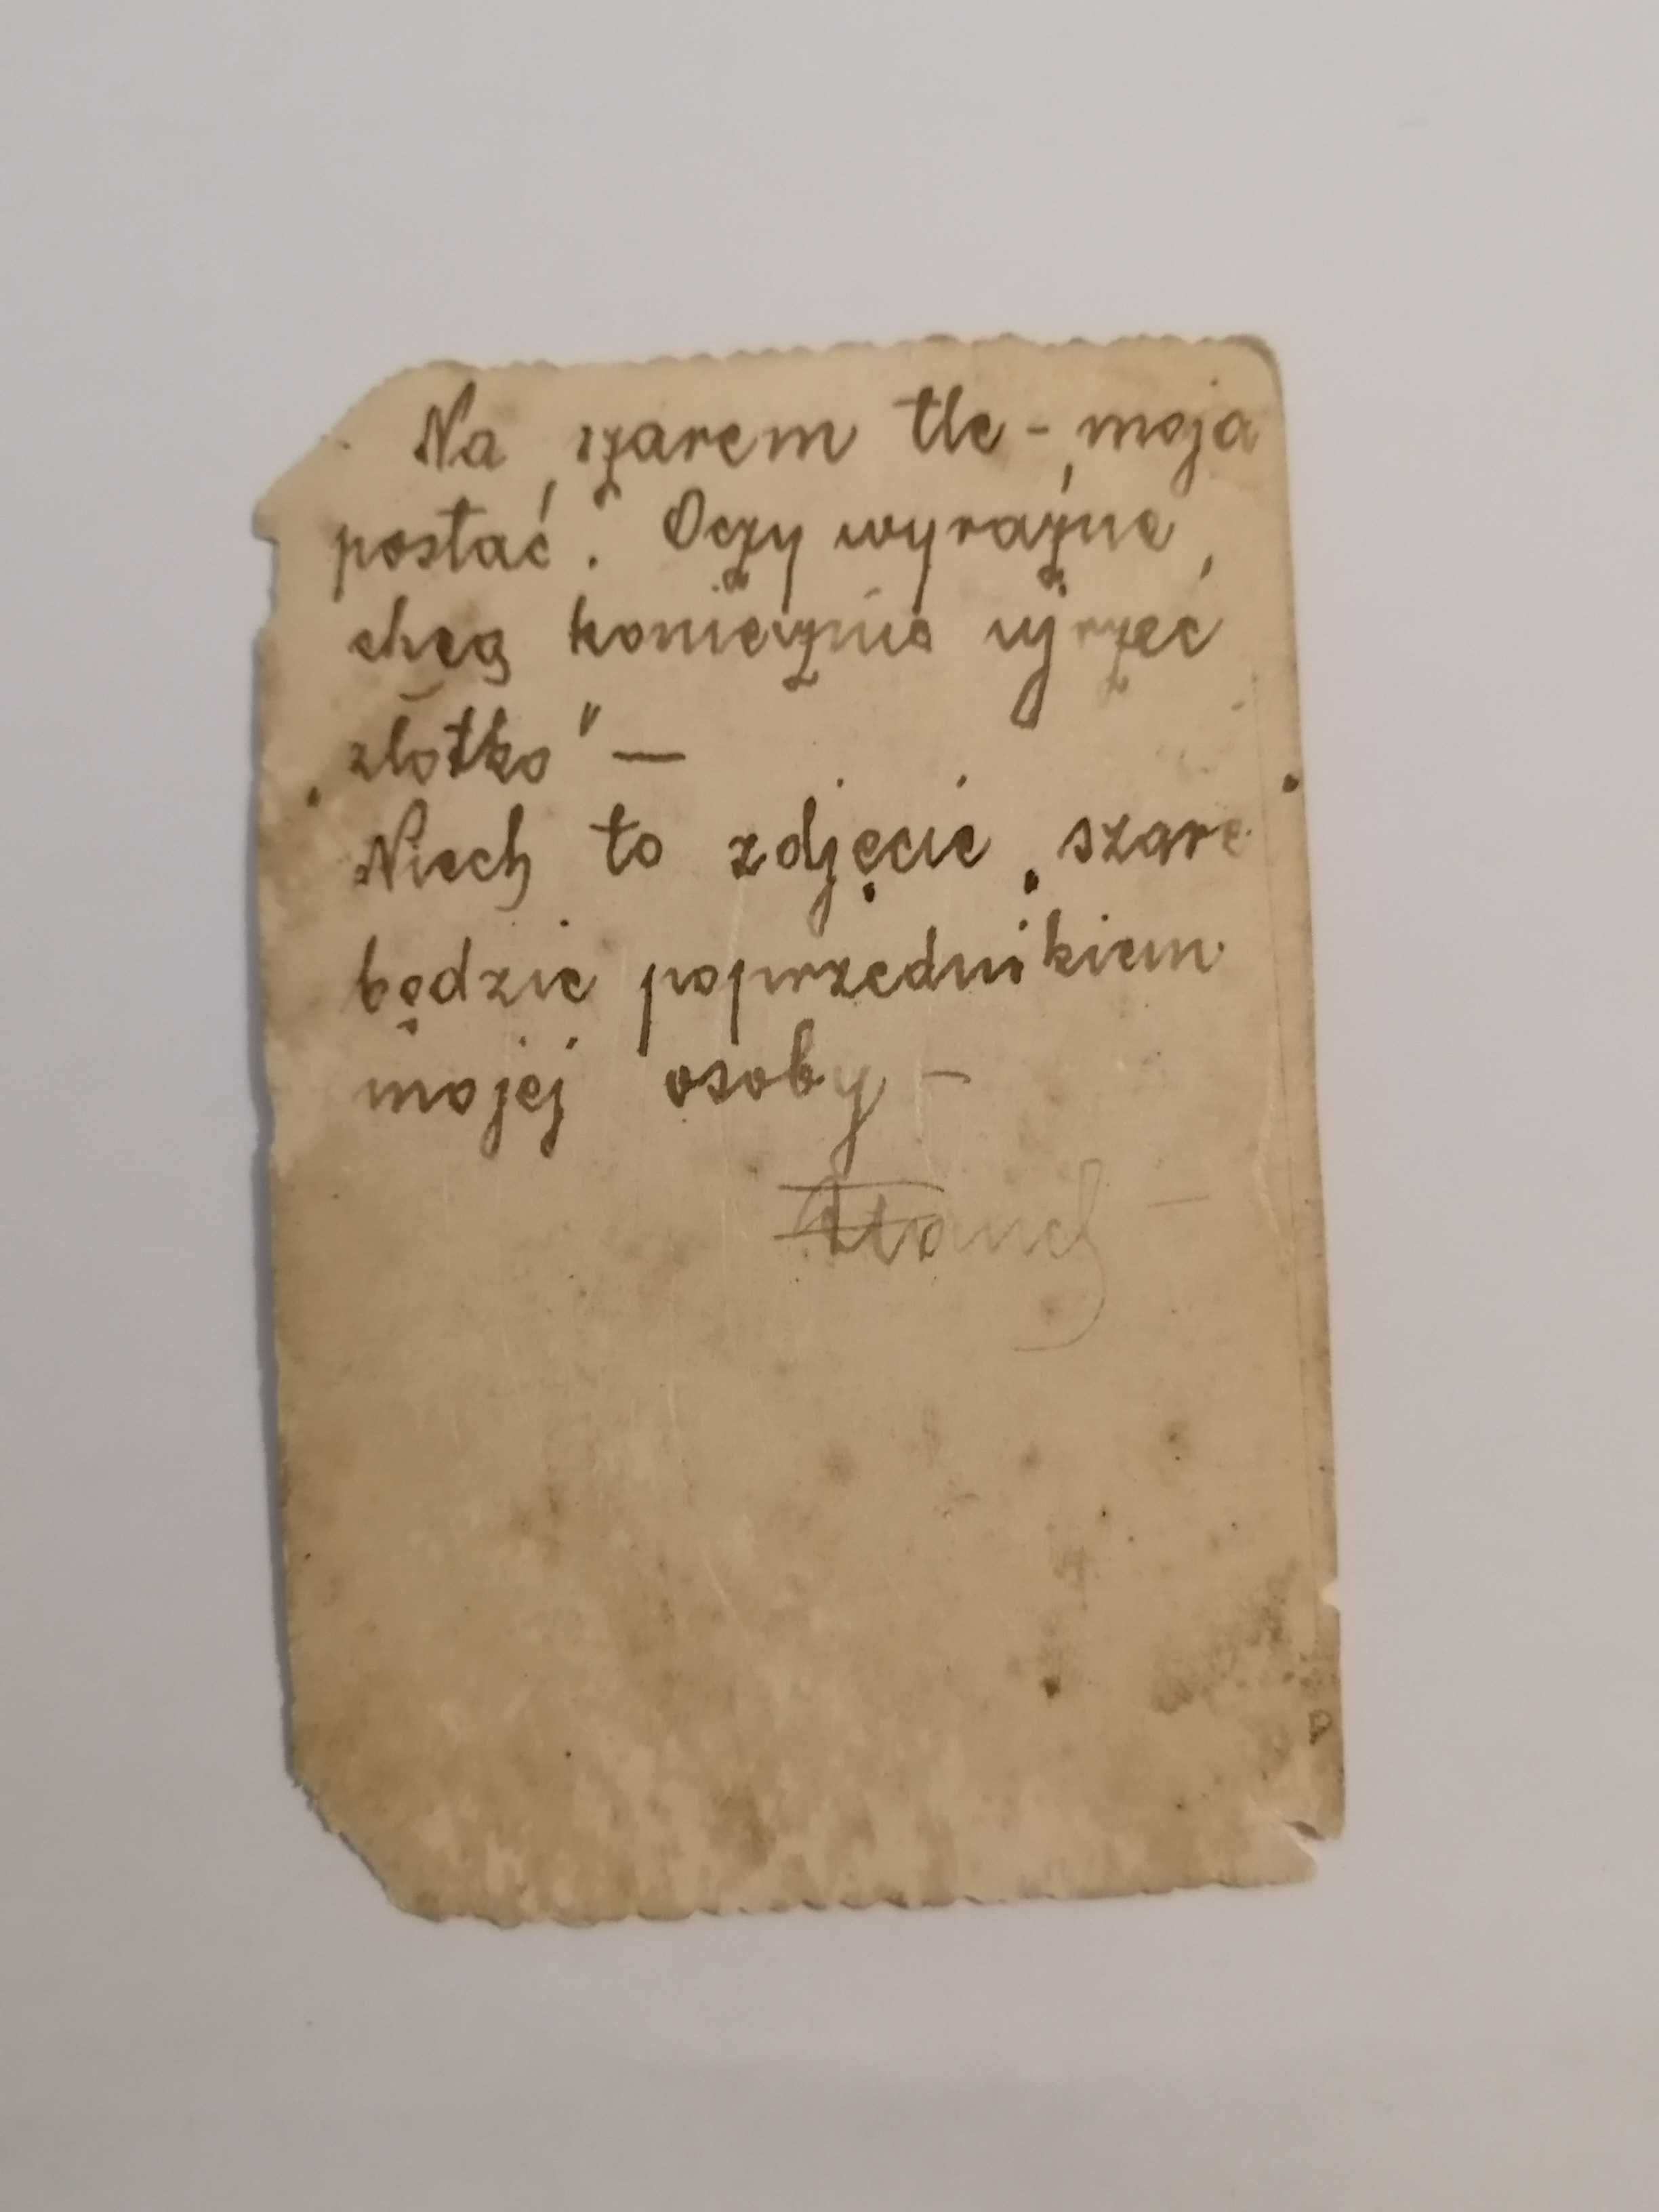 Na szarem tle - moja
postać. Oczy wyraźne,
chcą koniecznie ujrzeć
„złotko" —
Niech to zdjęcie „szare
będzie poprzednikiem
mojej osoby -